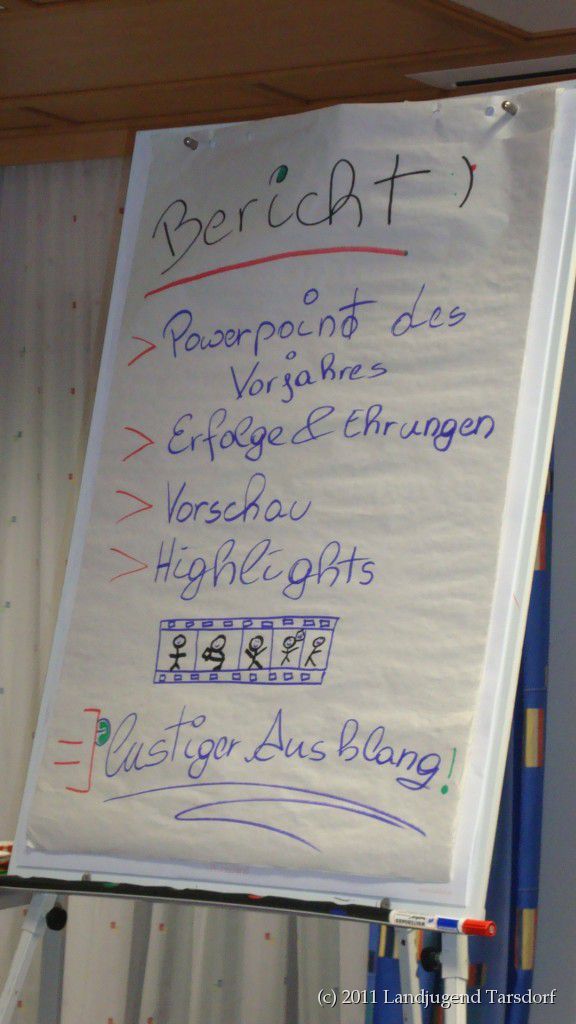 Bericht :)
> Powerpoint des
Vorjahres
> Erfolge & Ehrungen
> Vorschau
> Highlights
=] lustiger Ausklang!
(c) 2011 Landjugend Tarsdorf